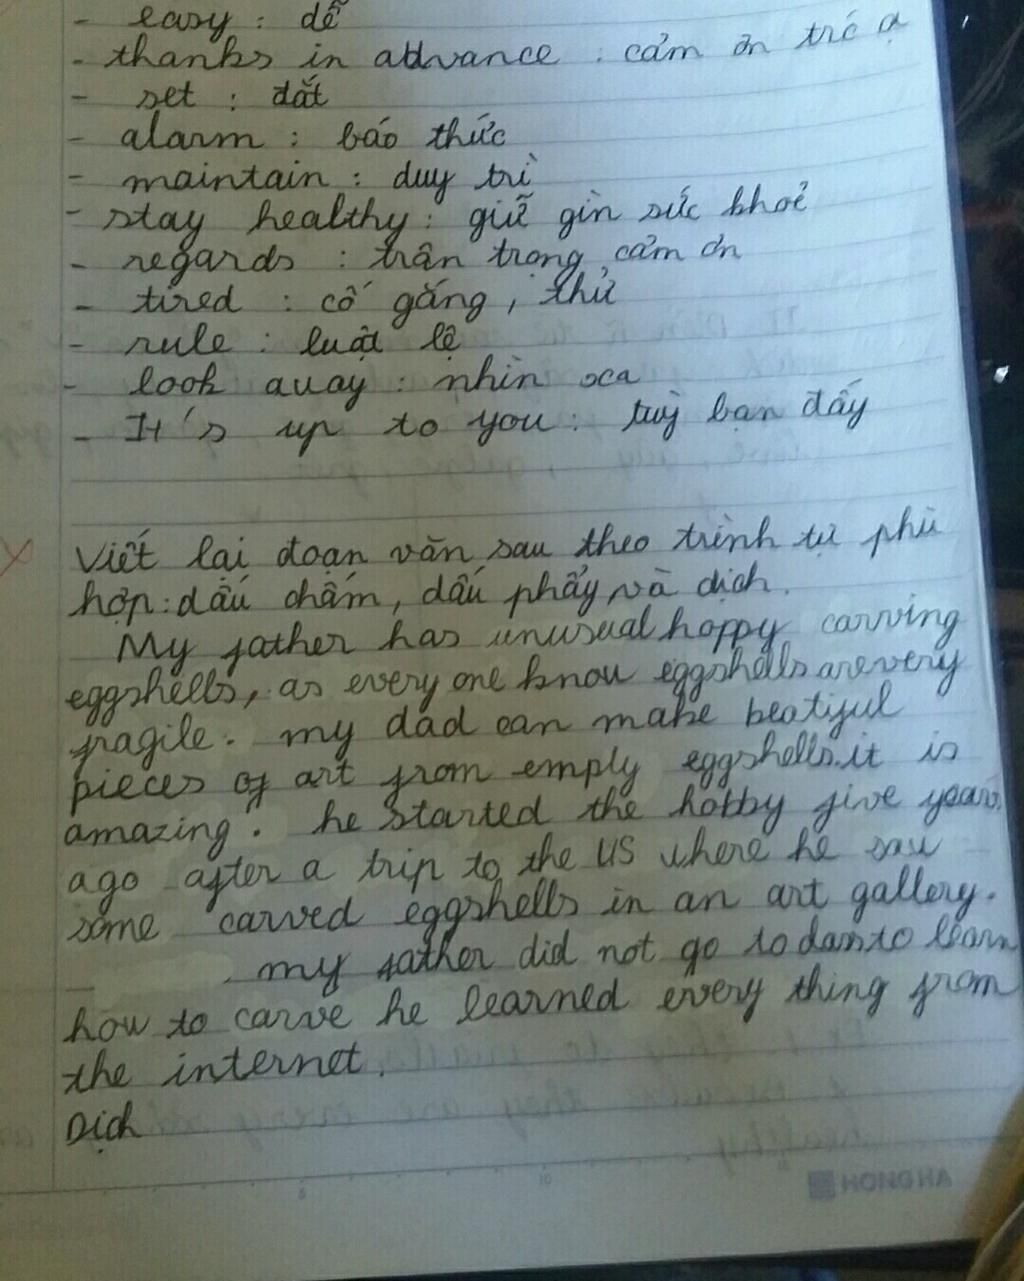 - easy : dễ
- thanks in advance : cảm ơn trc ạ
- set : đắt
- alarm : báo thức
- maintain : duy trì
- stay healthy : giữ gìn sức khoẻ
- regards : trân trọng cảm ơn
- tired : cố gắng, thử
- rule : luật lệ
- look auay : nhìn xca
- It's up to you : tuỳ bạn đấy
Viết lại đoạn văn sau theo trình tự phù
hợp : dấu chấm, dấu phẩy và dịch.
My father has unusual hoppy carving
eggshells, as every one know eggshells are very
fragile. my dad can make beatiful
pieces of art from emply eggshells. it is
amazing. he started the hobby five years
ago after a trip to the US where he saw
some carved eggshells in an art gallery.
my father did not go to to learn
how to carve he learned every thing from
the internet.
Dịch
HONG HA